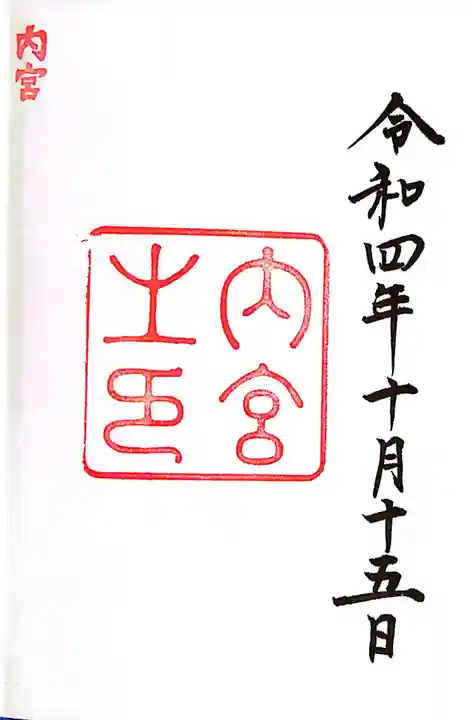 令和四年十月十五日
内宮
之印
内宮